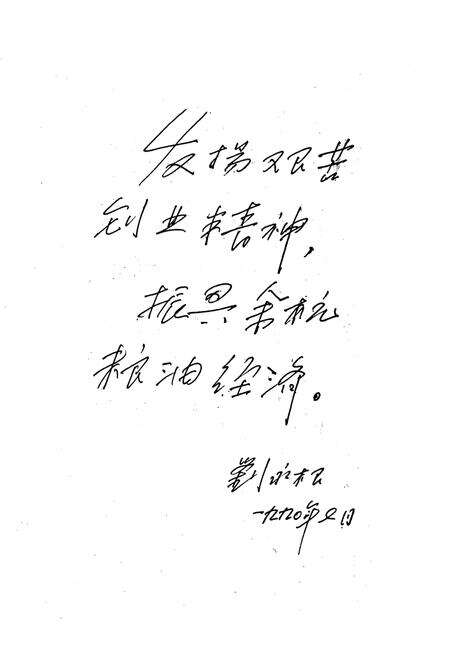 发扬艰苦
创业精神,
振兴余杭
粮油经济。
劉永根
一九九〇年 月